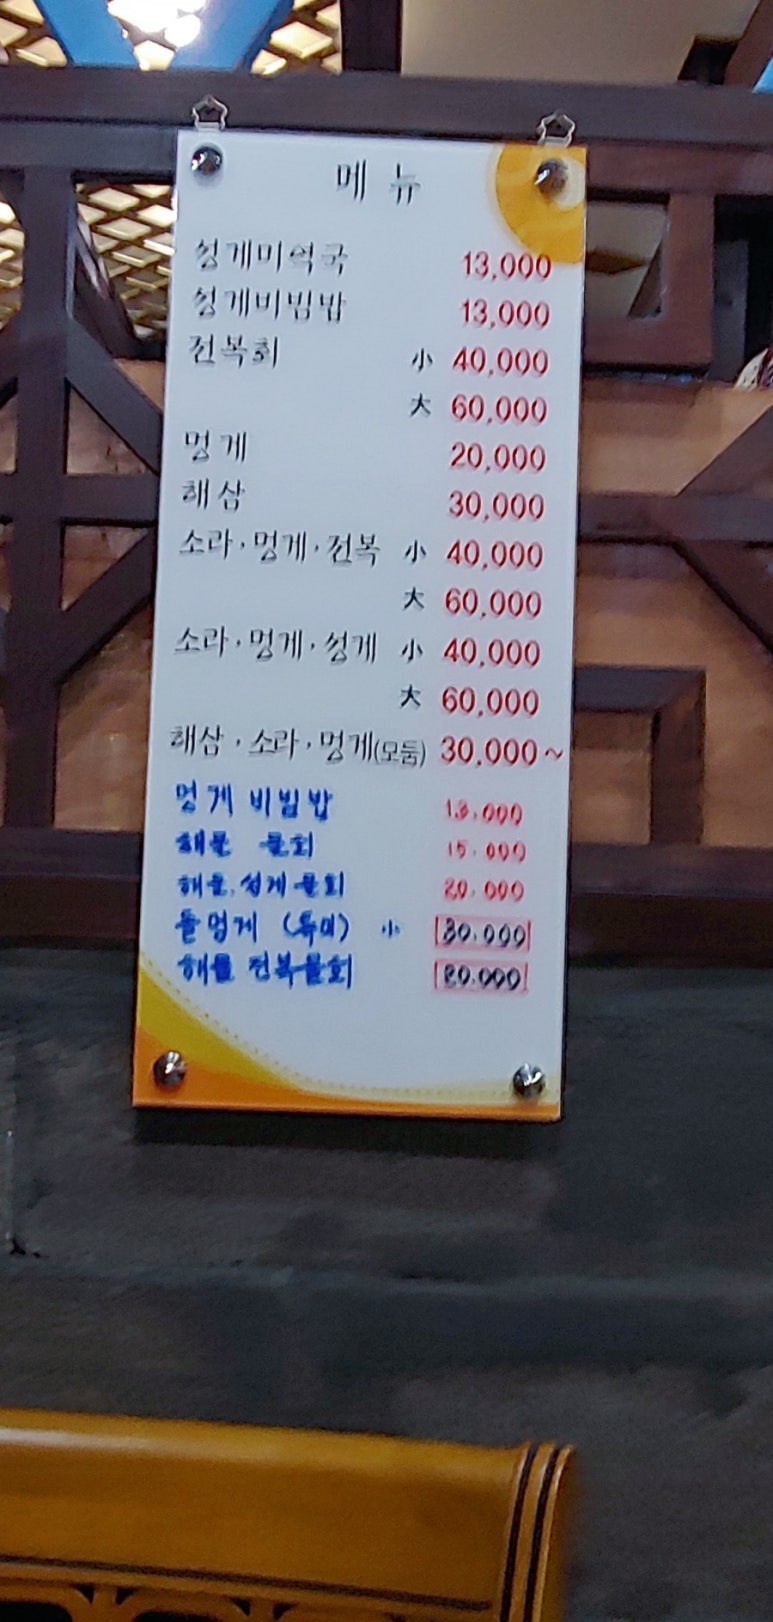 메뉴
성게미역국 13,000
성게비빔밥 13,000
전복회 小 40,000
大 60,000
멍게 20,000
해삼 30,000
소라·멍게·전복 小 40,000
大 60,000
소라·멍게·성게 小 40,000
大 60,000
해삼·소라·멍게(모둠) 30,000~
멍게 비빔밥 13.000
해물 물회 15.000
해물.성게물회 20.000
돌멍게 (특미) 小 30.000
해물 전복물회 20.000